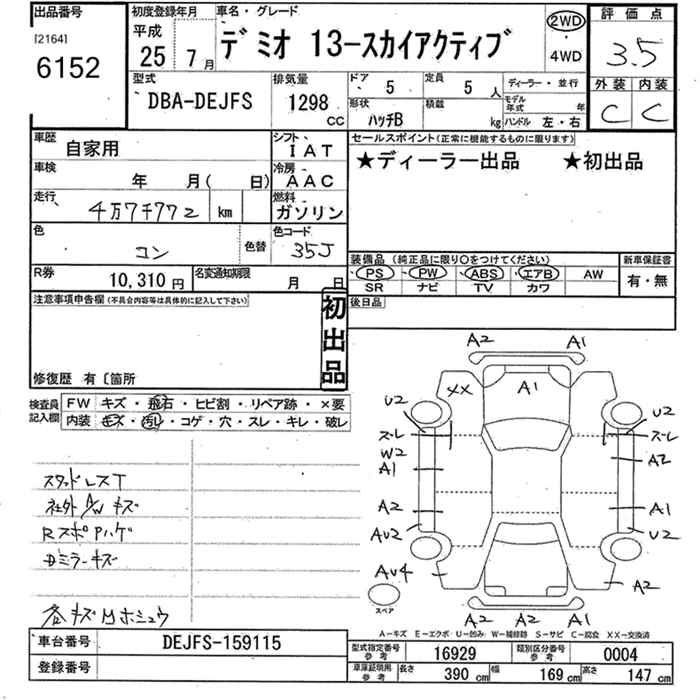 出品番号
[2164]
6152
初度登録年月
平成
25 7月
車名・グレード
デミオ 13-スカイアクティブ
2WD
・
4WD
評価点
3.5
外装 内装
C C
型式
DBA-DEJFS
排気量
1298
CC
ドア
5
定員
5 人
形状
ハッチB
積載
kg
ディーラー・並行
モデル年式 年
ハンドル 左・右
車歴
自家用
シフト
IAT
車検
年 月( 日)
冷房
AAC
走行
4万7千772 km
燃料
ガソリン
色
コン
色替
色コード
35J
R券
10,310円
名変通知期限
月 日
セールスポイント(正常に機能するものに限ります)
★ディーラー出品 ★初出品
装備品(純正品に限り○をつけてください)
PS PW ABS エアB AW
SR ナビ TV カワ
新車保証書
有・無
後日品
注意事項申告欄(不具合内容等は具体的に記入して下さい)
初出品
修復歴 有〔箇所
検査員記入欄
FW キズ・飛石・ヒビ割・リペア跡・×要
内装 キズ・汚レ・コゲ・穴・スレ・キレ・破レ
スタッドレスT
社外A/Wキズ
RスポPハゲ
Dミラーキズ
各キズMホシュウ
A2 A1
XX A1
U2 U2
スーレ スーレ
W2
A1 A2
A2 A1
AU2 U2
AU4 A2
スペア
A2 A2 A1
A-キズ E-エクボ U-凹み W-補修跡 S-サビ C-腐食 XX-交換済
車台番号
DEJFS-159115
登録番号
型式指定番号
参考
16929
類別区分番号
参考
0004
車庫証明用
参考
長さ
390 cm
幅
169 cm
高さ
147 cm